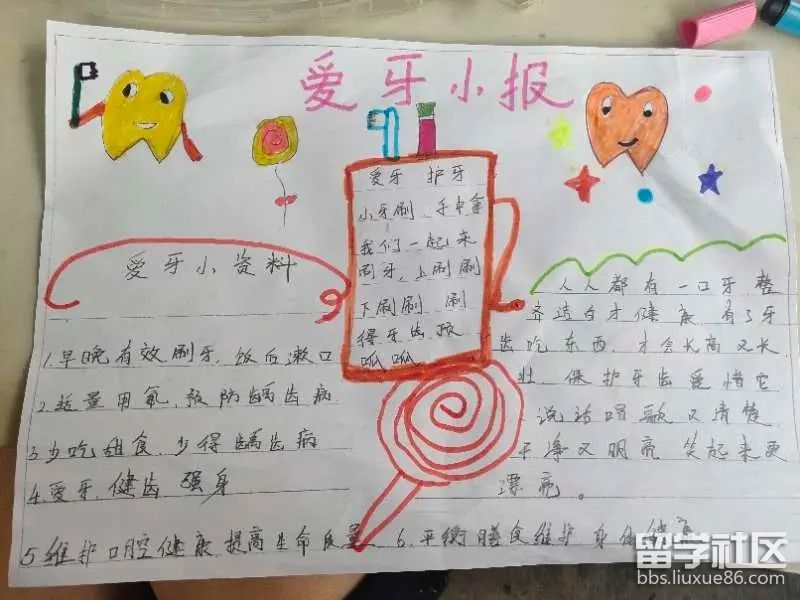 爱牙小报
爱牙 护牙
小牙刷 手中拿
我们一起来
刷牙,上刷刷
下刷刷 刷
得牙齿
呱呱
爱牙小资料
1.早晚有效刷牙,饭后漱口
2.适量用氟,预防龋齿病
3.少吃甜食,少得龋齿病
4.爱牙,健齿 强身
5.维护口腔健康,提高生命质量
6.平衡膳食维护 身体健康
人人都有一口牙,整
齐洁白才健康,有了牙
齿吃东西,才会长高又长
壮,保护牙齿爱惜它
说话唱歌又清楚
干净又明亮 笑起来更
漂亮。
留学社区
bbs.liuxue86.com